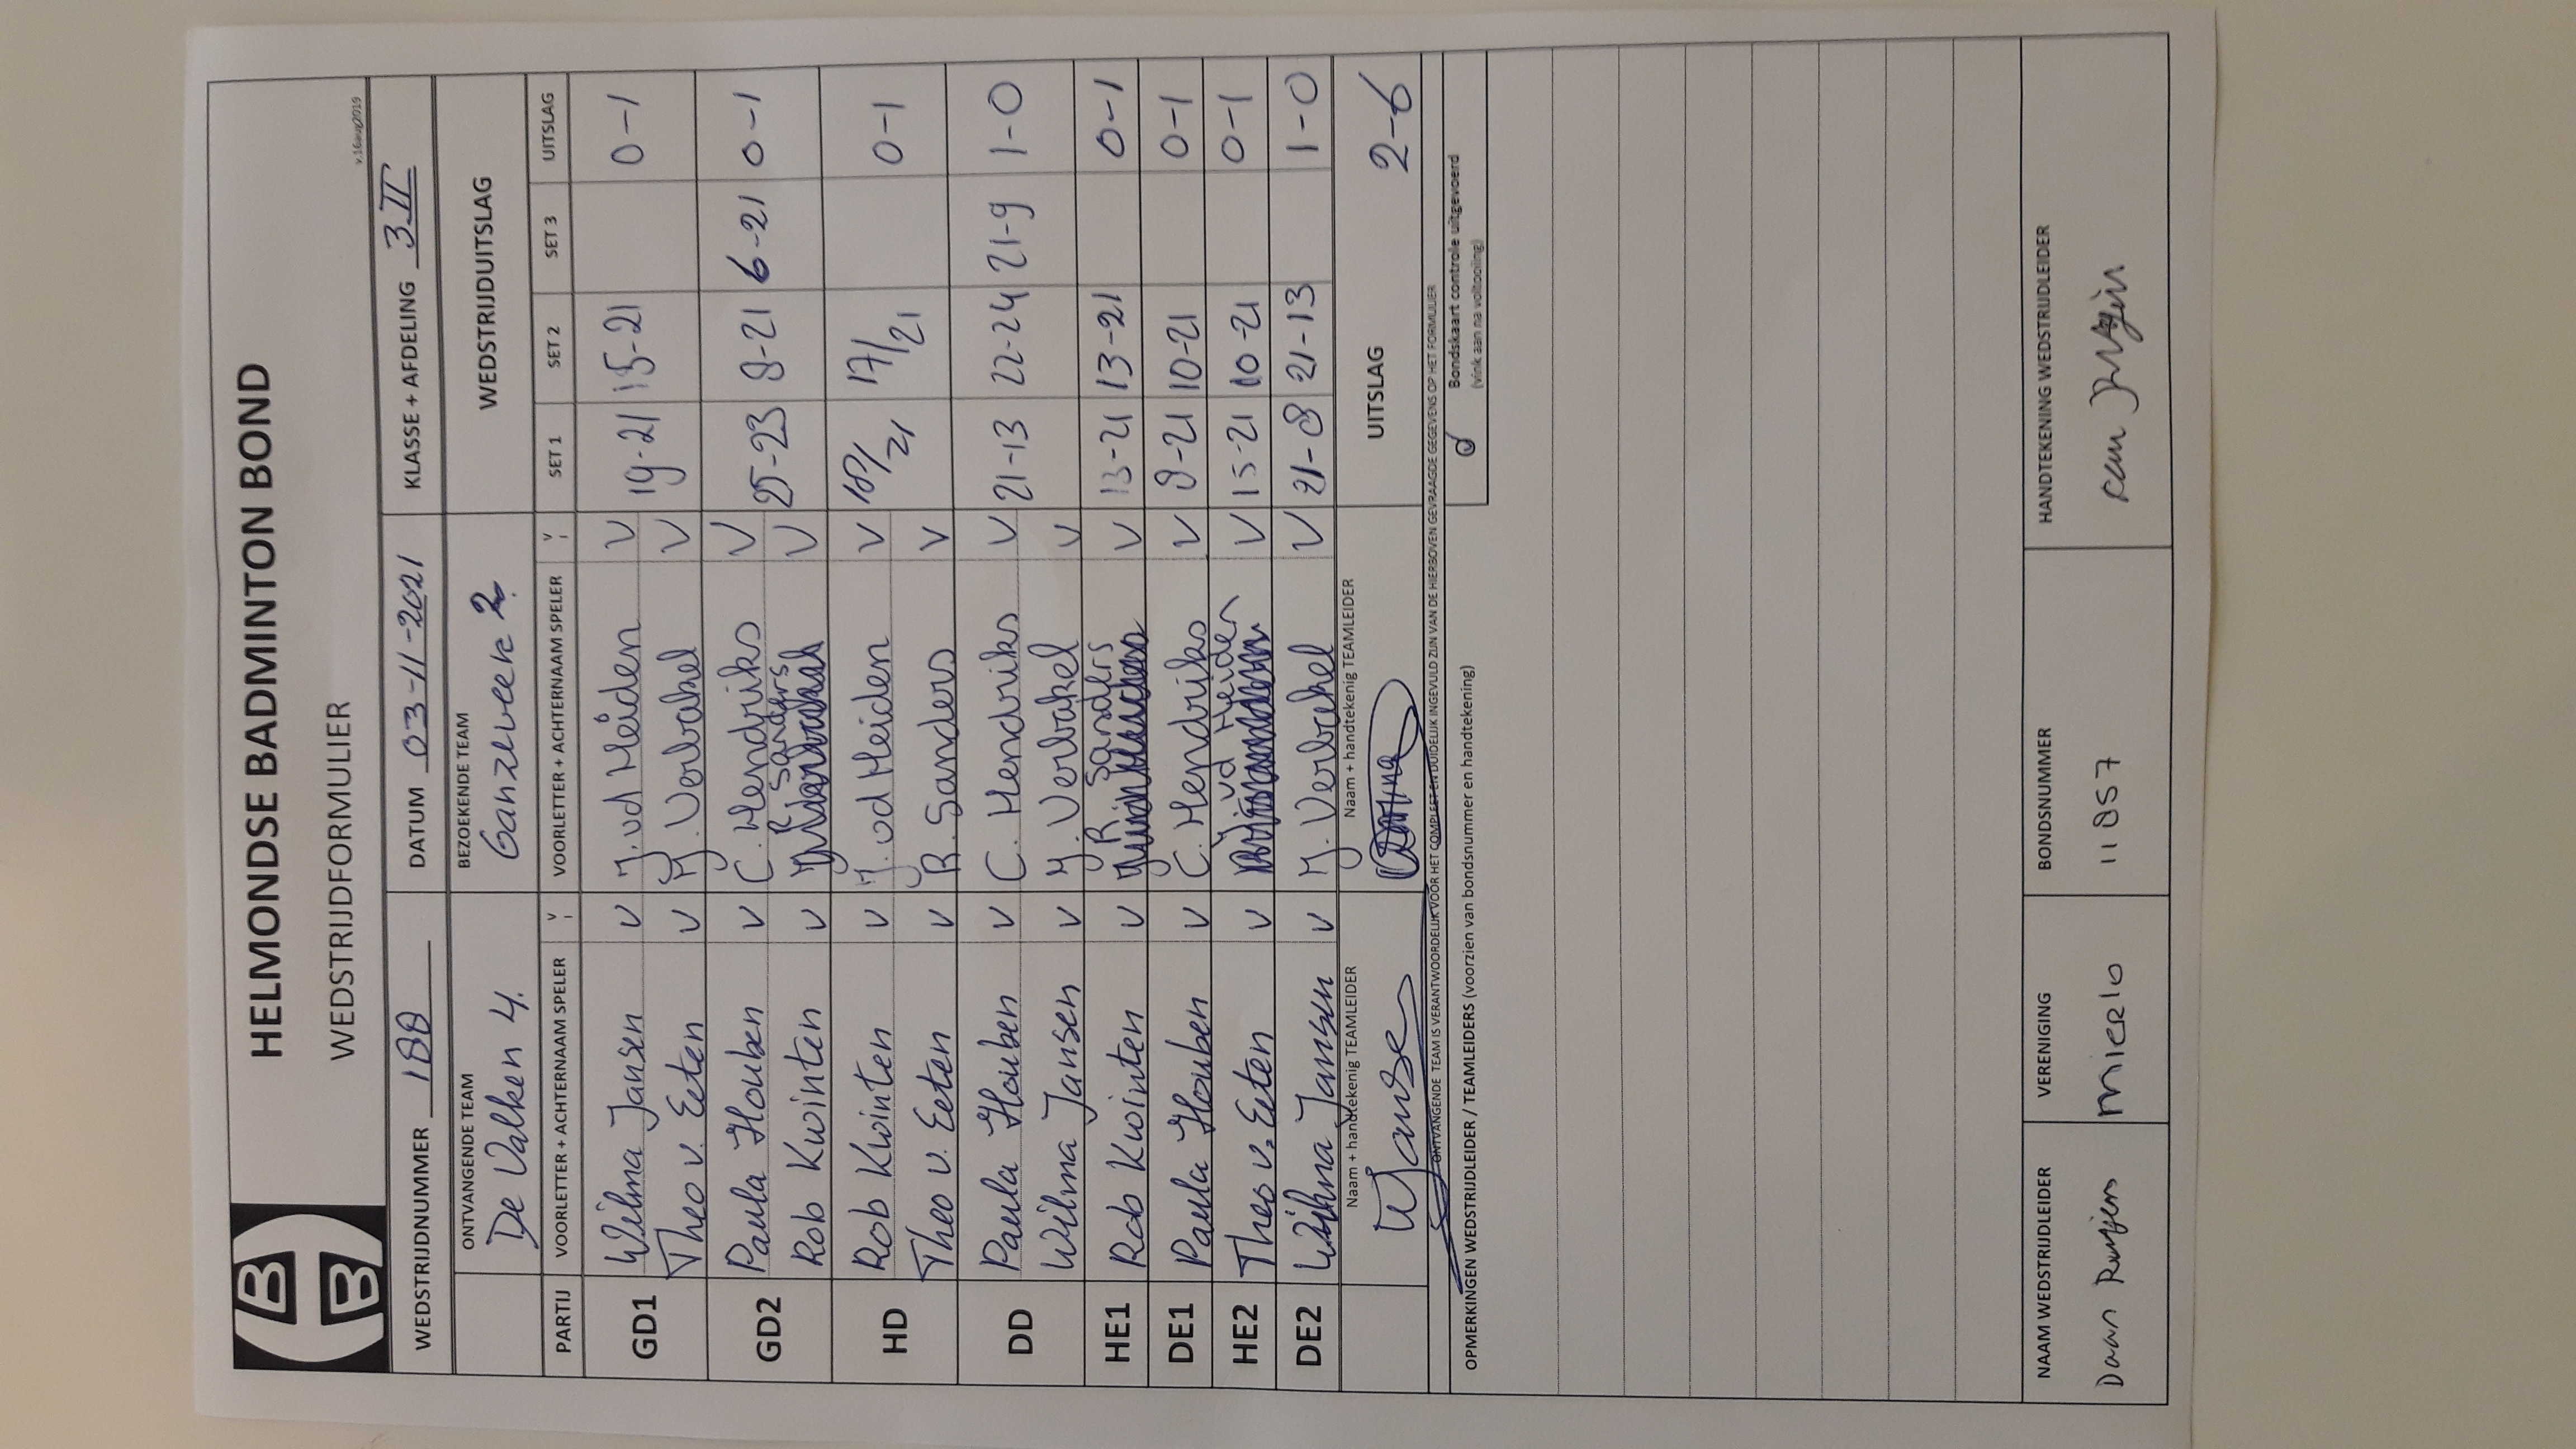 HELMONDSE BADMINTON BOND
WEDSTRIJDFORMULIER
v.16aug2019
WEDSTRIJDNUMMER 188 DATUM 03-11-2021 KLASSE + AFDELING 3 II
ONTVANGENDE TEAM BEZOEKENDE TEAM WEDSTRIJDUITSLAG
De Valken 4. Ganzeveer 2
PARTIJ VOORLETTER + ACHTERNAAM SPELER V VOORLETTER + ACHTERNAAM SPELER V SET 1 SET 2 SET 3 UITSLAG
GD1 Wilma Jansen V J. vd Heiden V 19-21 15-21 0-1
Theo v. Eeten V M. Verbakel V
GD2 Paula Houben V C. Hendriks V 25-23 8-21 6-21 0-1
Rob Kwinten V R. Sanders V
HD Rob Kwinten V J. vd Heiden V 18/21 17/21 0-1
Theo v. Eeten V R. Sanders V
DD Paula Houben V C. Hendriks V 21-13 22-24 21-9 1-0
Wilma Jansen V M. Verbakel V
HE1 Rob Kwinten V R Sanders V 13-21 13-21 0-1
DE1 Paula Houben V C. Hendriks V 8-21 10-21 0-1
HE2 Theo v. Eeten V J vd Heiden V 15-21 10-21 0-1
DE2 Wilma Jansen V M. Verbakel V 21-8 21-13 1-0
Naam + handtekenig TEAMLEIDER Naam + handtekenig TEAMLEIDER UITSLAG 2-6
WJanse
ONTVANGENDE TEAM IS VERANTWOORDELIJK VOOR HET COMPLEET EN DUIDELIJK INGEVULD ZIJN VAN DE HIERBOVEN GEVRAAGDE GEGEVENS OP HET FORMULIER
OPMERKINGEN WEDSTRIJDLEIDER / TEAMLEIDERS (voorzien van bondsnummer en handtekening)
Bondskaart controle uitgevoerd
(vink aan na voltooiing)
NAAM WEDSTRIJDLEIDER VERENIGING BONDSNUMMER HANDTEKENING WEDSTRIJDLEIDER
Daan Mierlo 11857